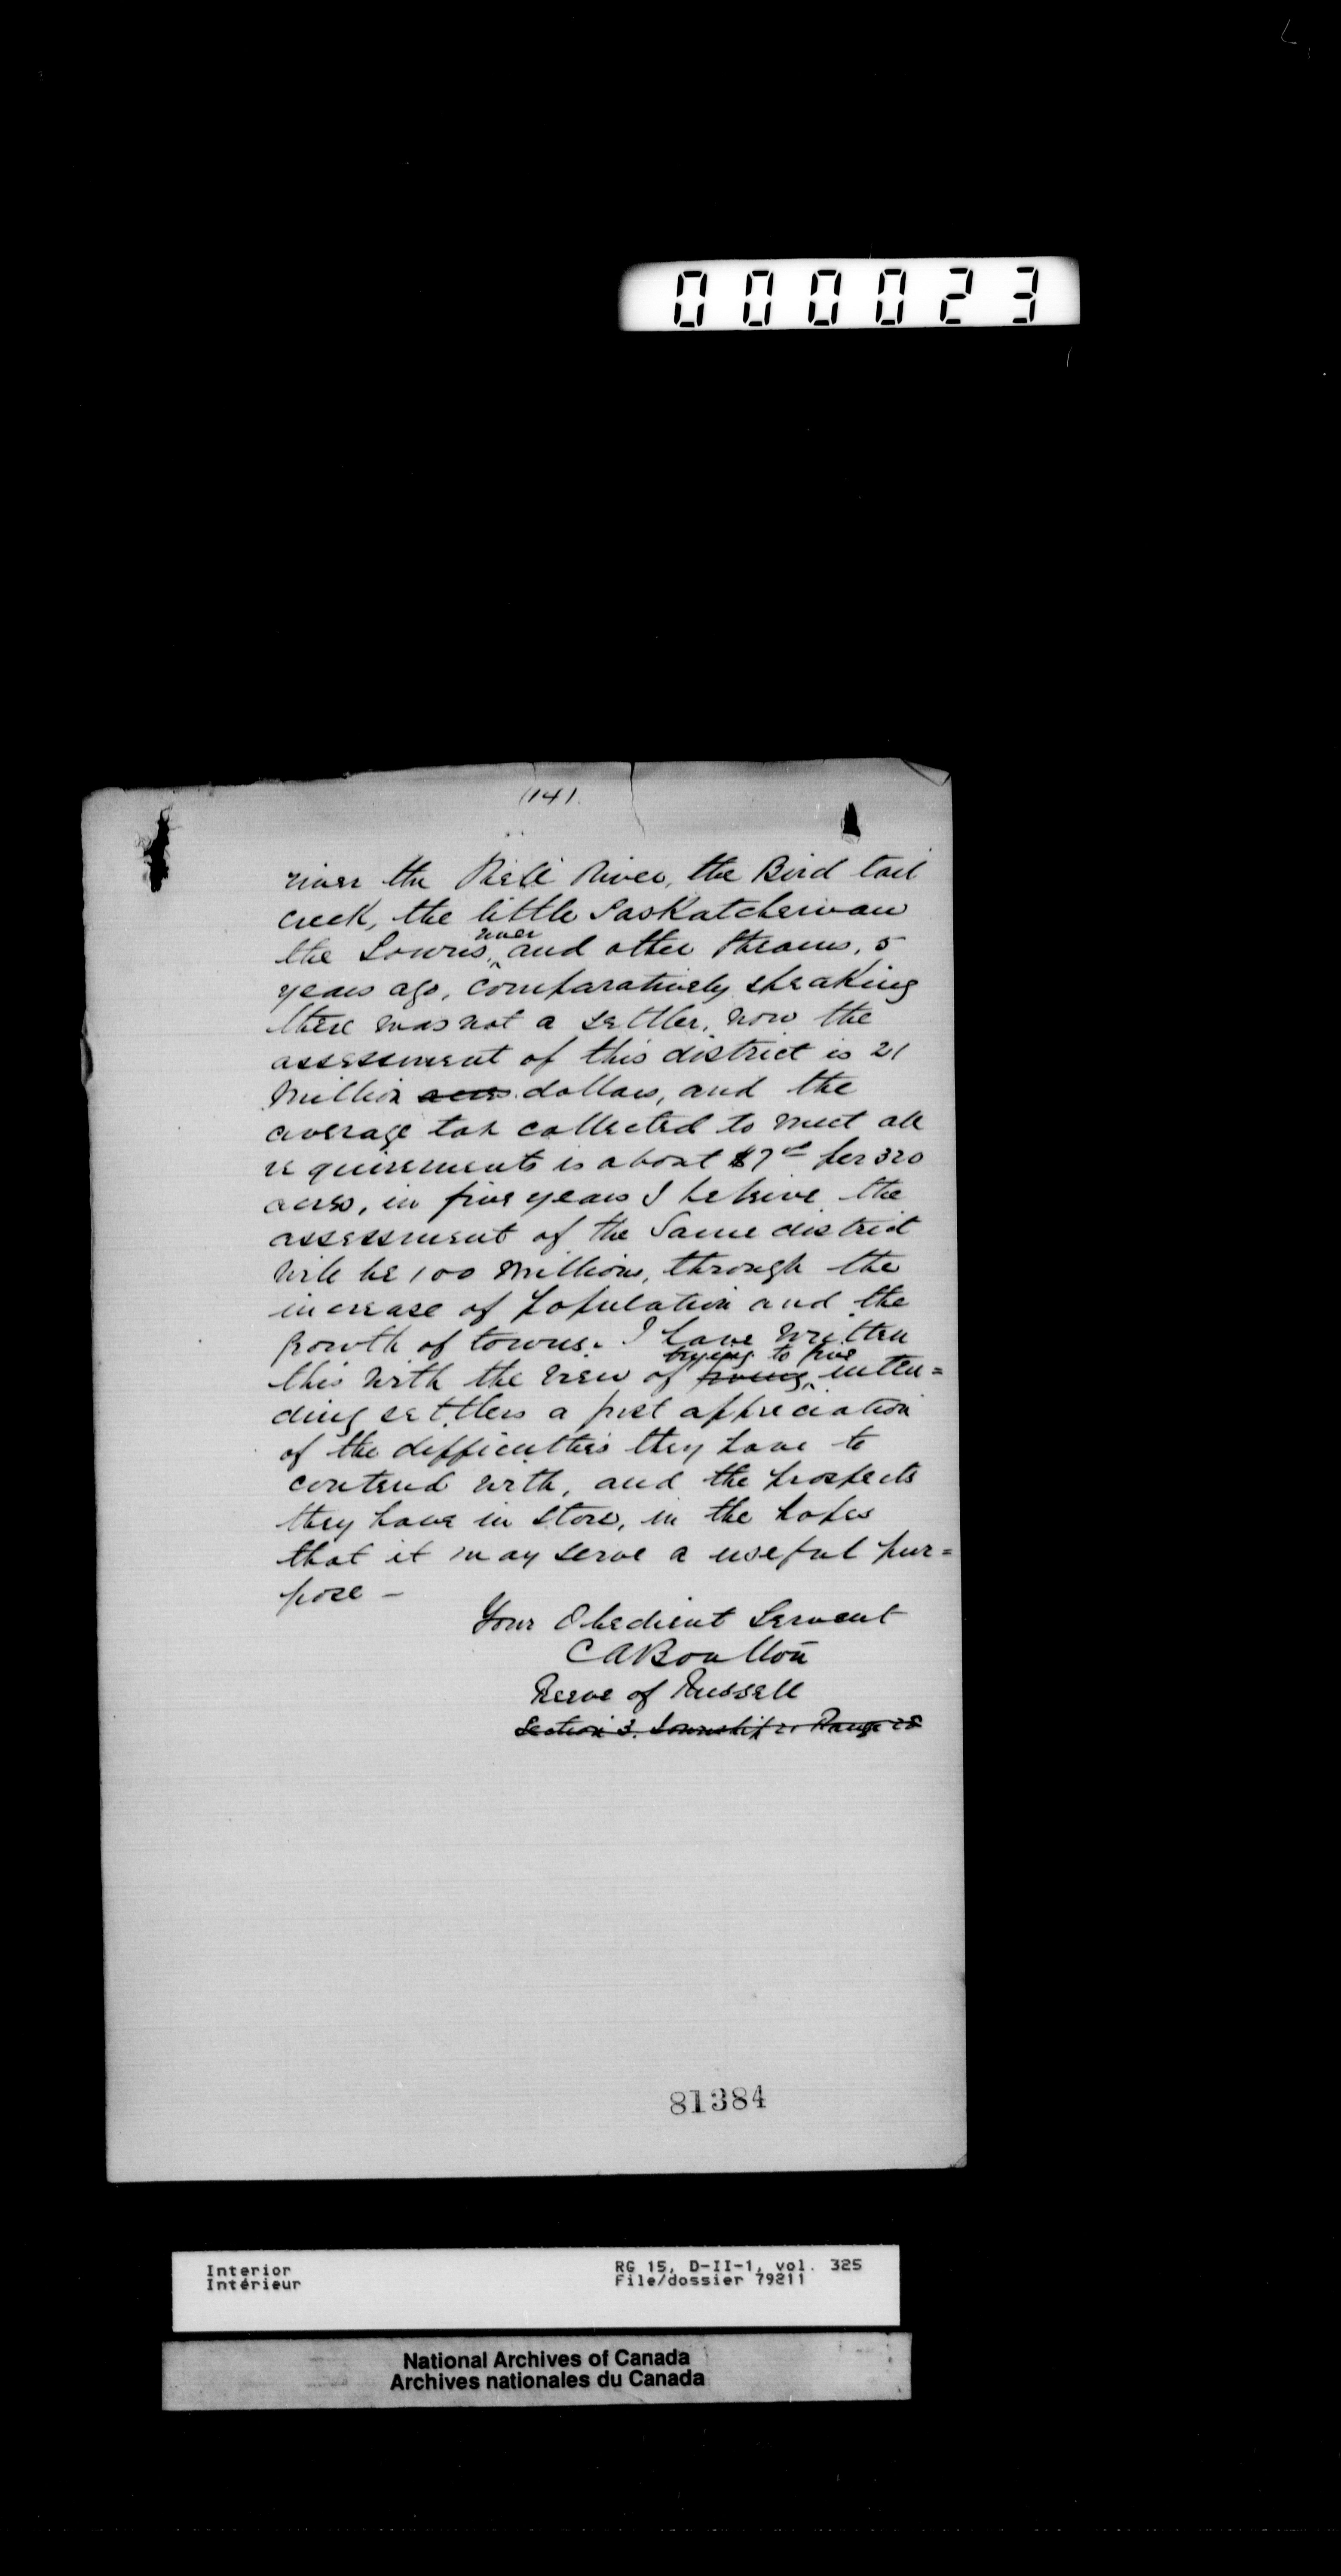 000023
(14)
river the Shell River, the Bird tail
creek, the little Saskatchewan
the Souris river and other streams, 5
years ago, comparatively speaking
there was not a settler, now the
assessment of this district is 21
Million acres dollars, and the
average tax collected to meet all
requirements is about $7 per 320
acres, in five years I believe the
assessment of the Same district
will be 100 Millions, through the
increase of population and the
growth of towns. I have written
this with the view of giving trying to give inten=
ding settlers a just appreciation
of the difficulties they have to
contend with, and the prospects
they have in store, in the hopes
that it may serve a useful pur=
pose -
Your Obedient Servant
CABoulton
Reeve of Russell
Section 3. Township 21 Range 28
81384
Interior
Intérieur
RG 15, D-II-1, vol. 325
File/dossier 79211
National Archives of Canada
Archives nationales du Canada